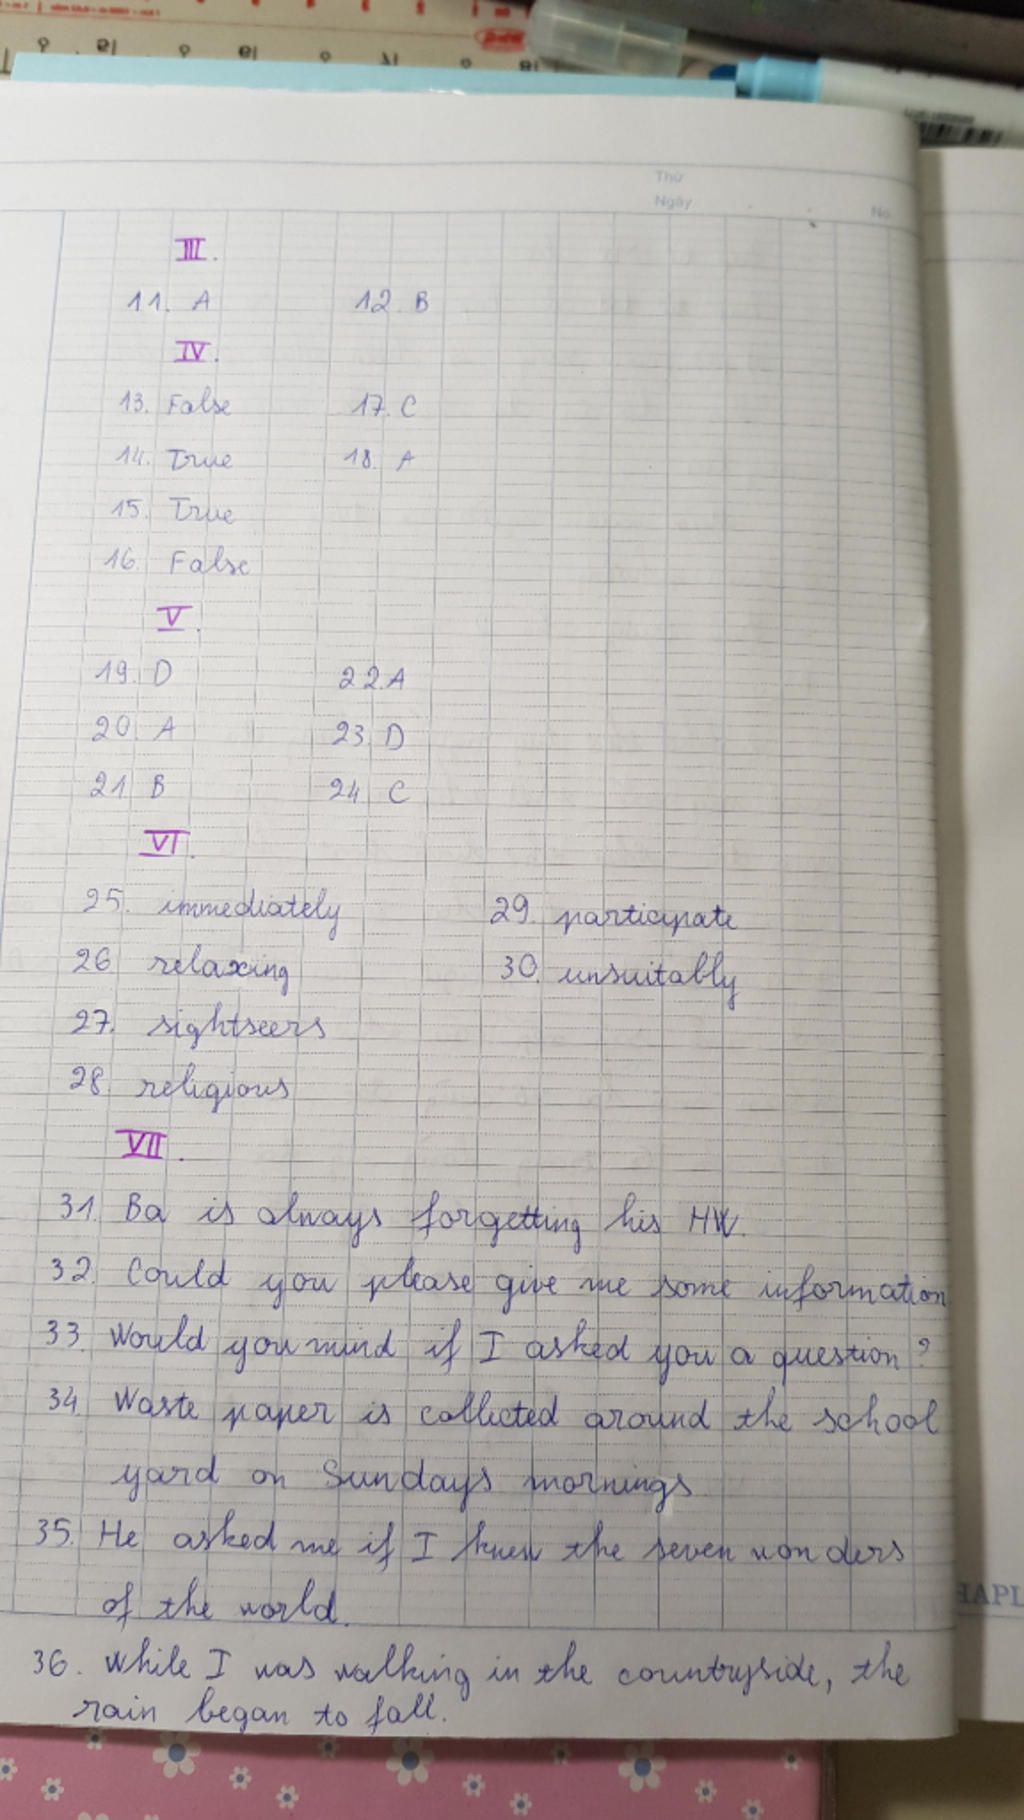 Thứ
Ngày
No.
III.
11. A 12. B
IV.
13. False 17. C
14. True 18. A
15. True
16. False
V.
19. D 22. A
20. A 23. D
21. B 24. C
VI.
25. immediately 29. participate
26. relaxing 30. unsuitably
27. sightseers
28. religious
VII.
31. Ba is always forgetting his HW.
32. Could you please give me some information
33. Would you mind if I asked you a question?
34. Waste paper is collected around the school
yard on Sundays mornings
35. He asked me if I knew the seven wonders
of the world.
36. While I was walking in the countryside, the
rain began to fall.